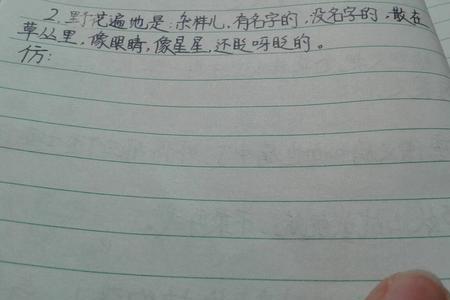 2. 野花遍地是:杂样儿,有名字的,没名字的,散在
草丛里,像眼睛,像星星,还眨呀眨的。
仿: